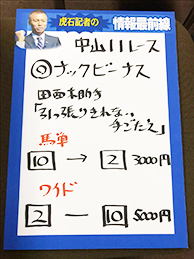 虎石記者の
情報最前線
中山11レース
◎ナックビーナス
田西本助手
「引っ張りきれない
手ごたえ」
馬単
10 → 2 3000円
ワイド
2 ― 10 5000円